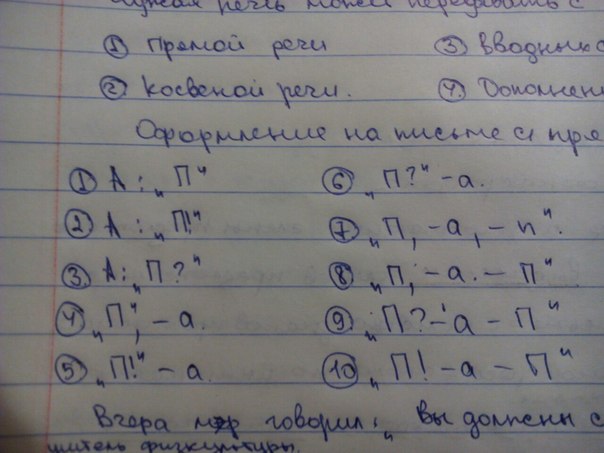 Чужая речь может передавать с
① Прямой речи ③ Вводных с
② Косвеной речи. ④. Дополнен
Оформление на письме с пря
① А: „П“ ⑥ „П?“ – а.
② А: „П!“ ⑦ „П, – а, – п“.
③. А: „П?“ ⑧ „П, – а. – П“
④ „П“, – а. ⑨ „П? – а – П“
⑤ „П!“ – а. ⑩ „П! – а – П“
Вчера говорил: „Вы должны с
учитель физкультуры.